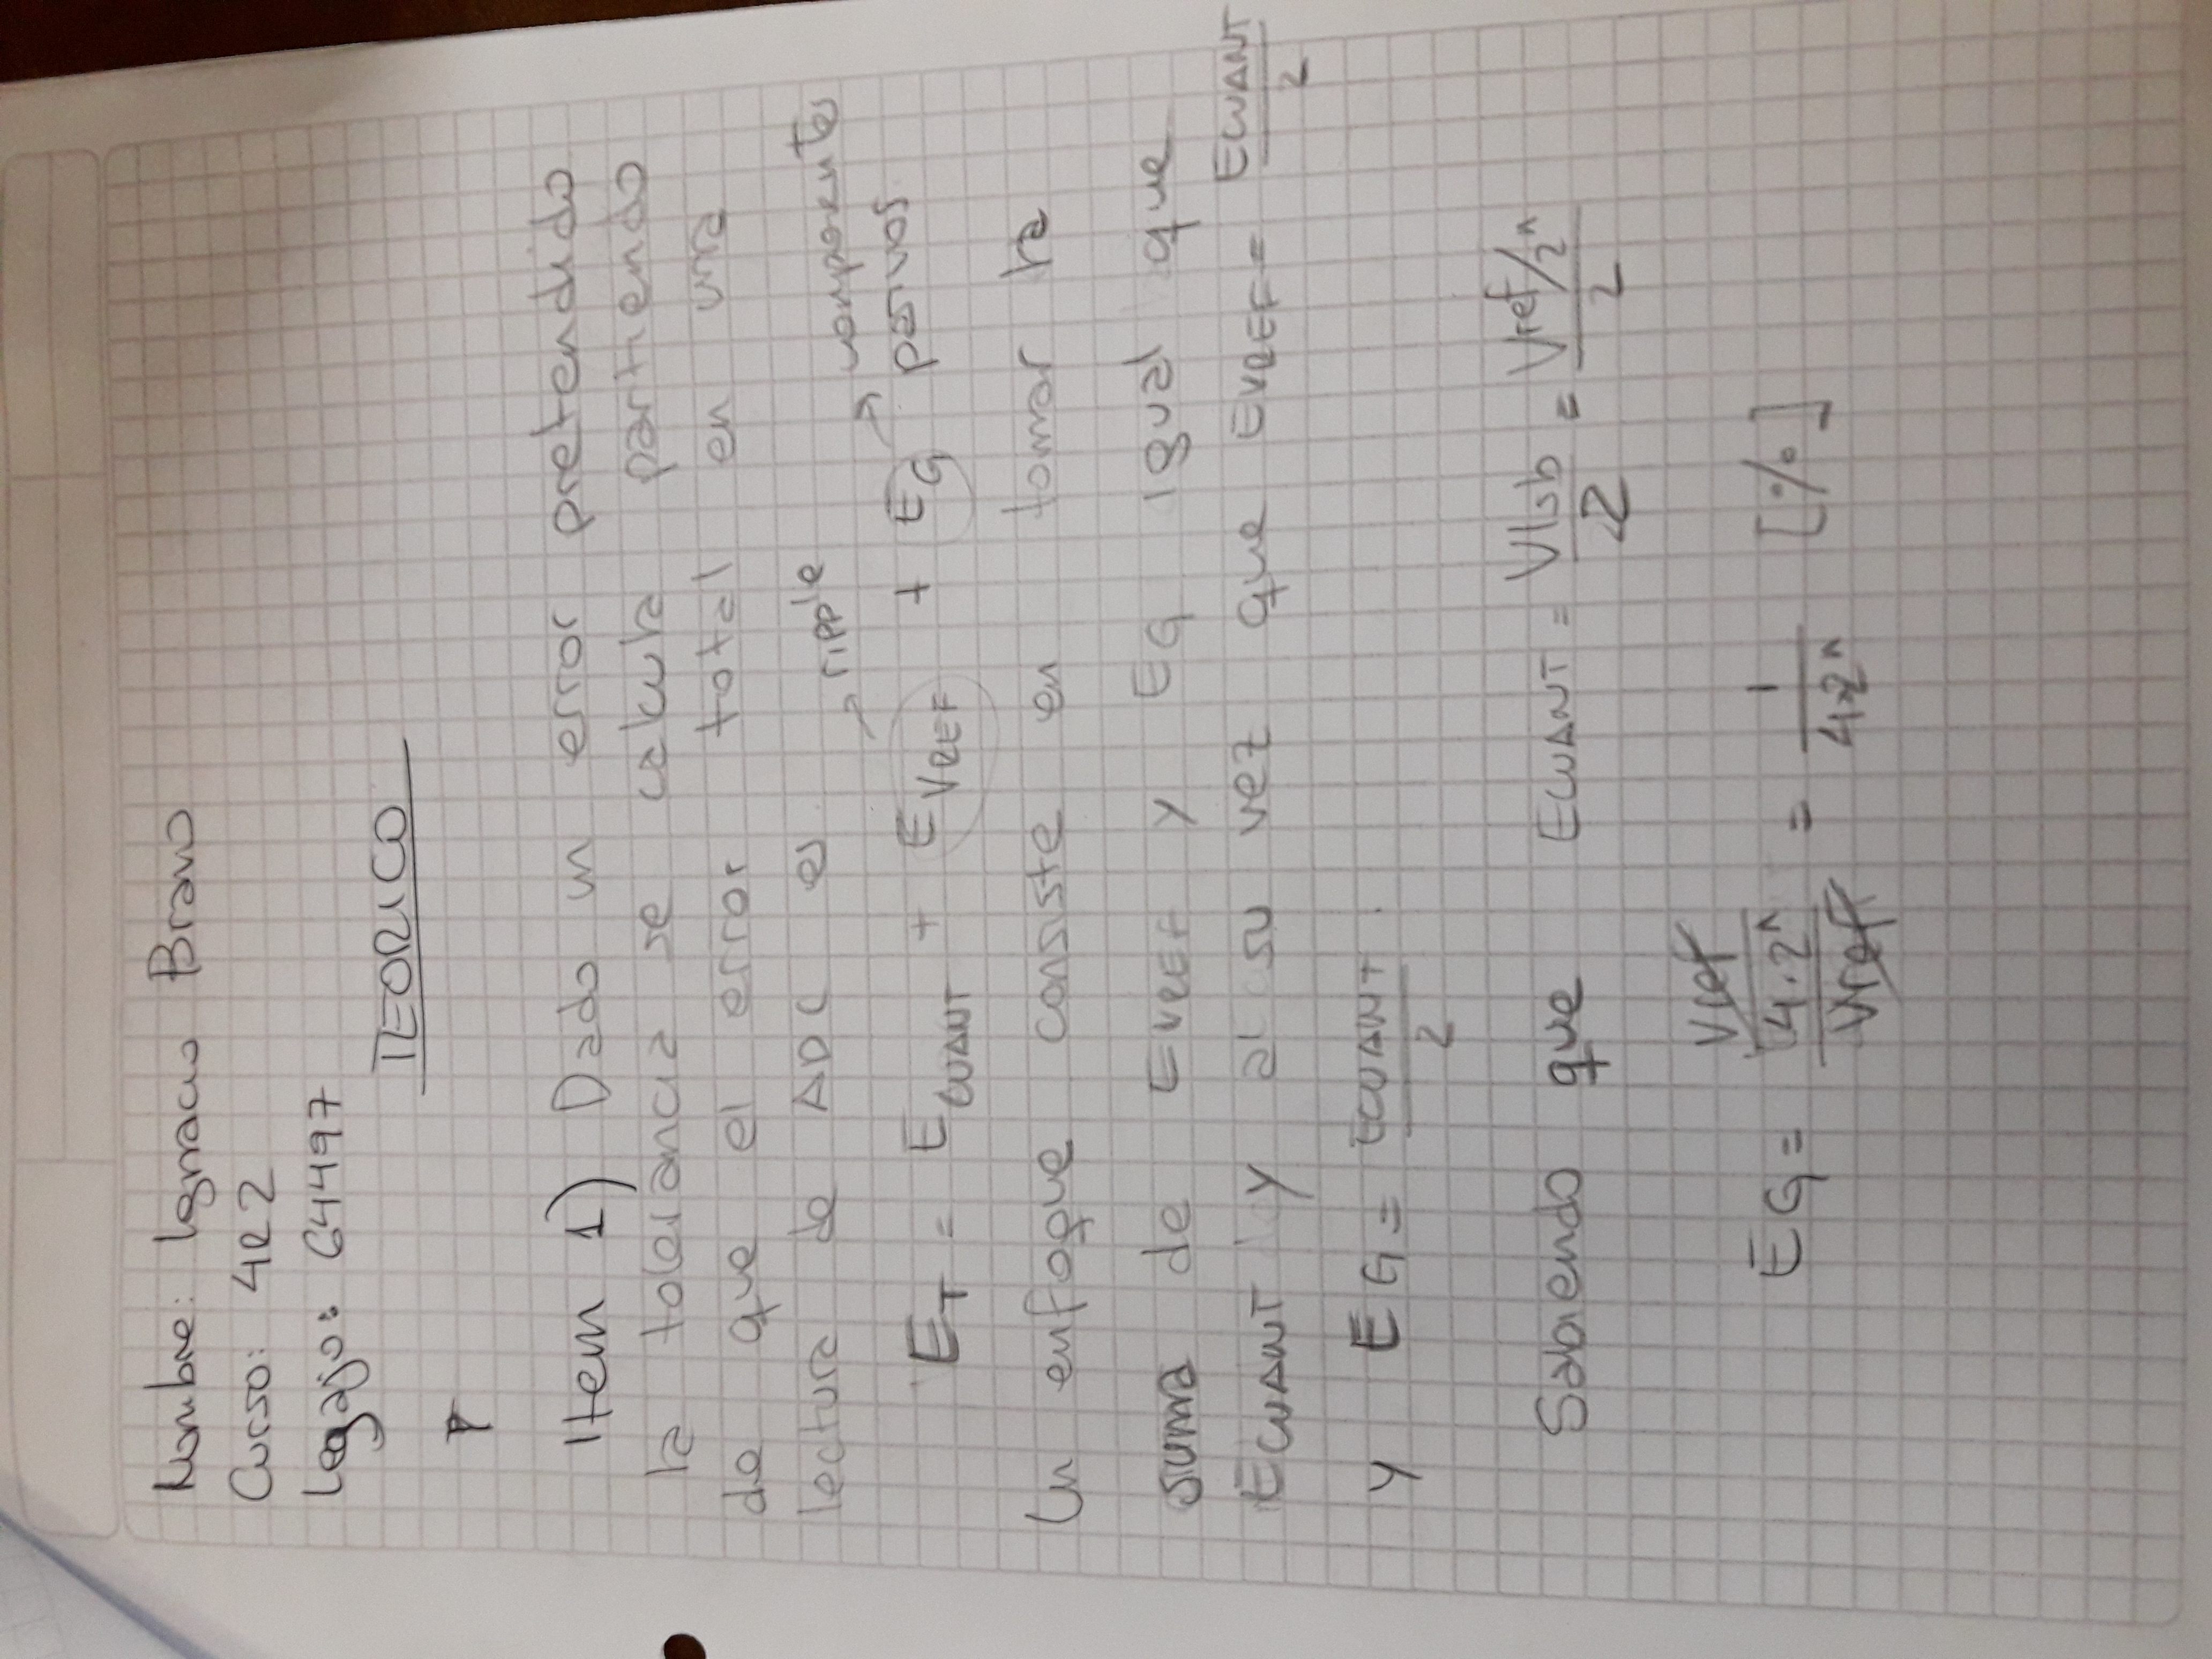 Nombre: Ignacio Bravo
Curso: 4R2
Legajo: 64497
TEORICO
Item 1) Dado un error pretendido
la tolerancia se calcula partiendo
de que el error total en una
lectura de ADC es
→ ripple
→ componentes
pasivos
ET = ECUANT + EVREF + EG
Un enfoque consiste en tomar la
suma de EVREF y EG igual que
ECUANT y al su vez que EVREF = ECUANT/2
y EG = ECUANT/2
Sabiendo que ECUANT = Vlsb/2 = (Vref/2^n)/2
EG = (Vref/(4.2^n))/Vref = 1/(4.2^n) [%]